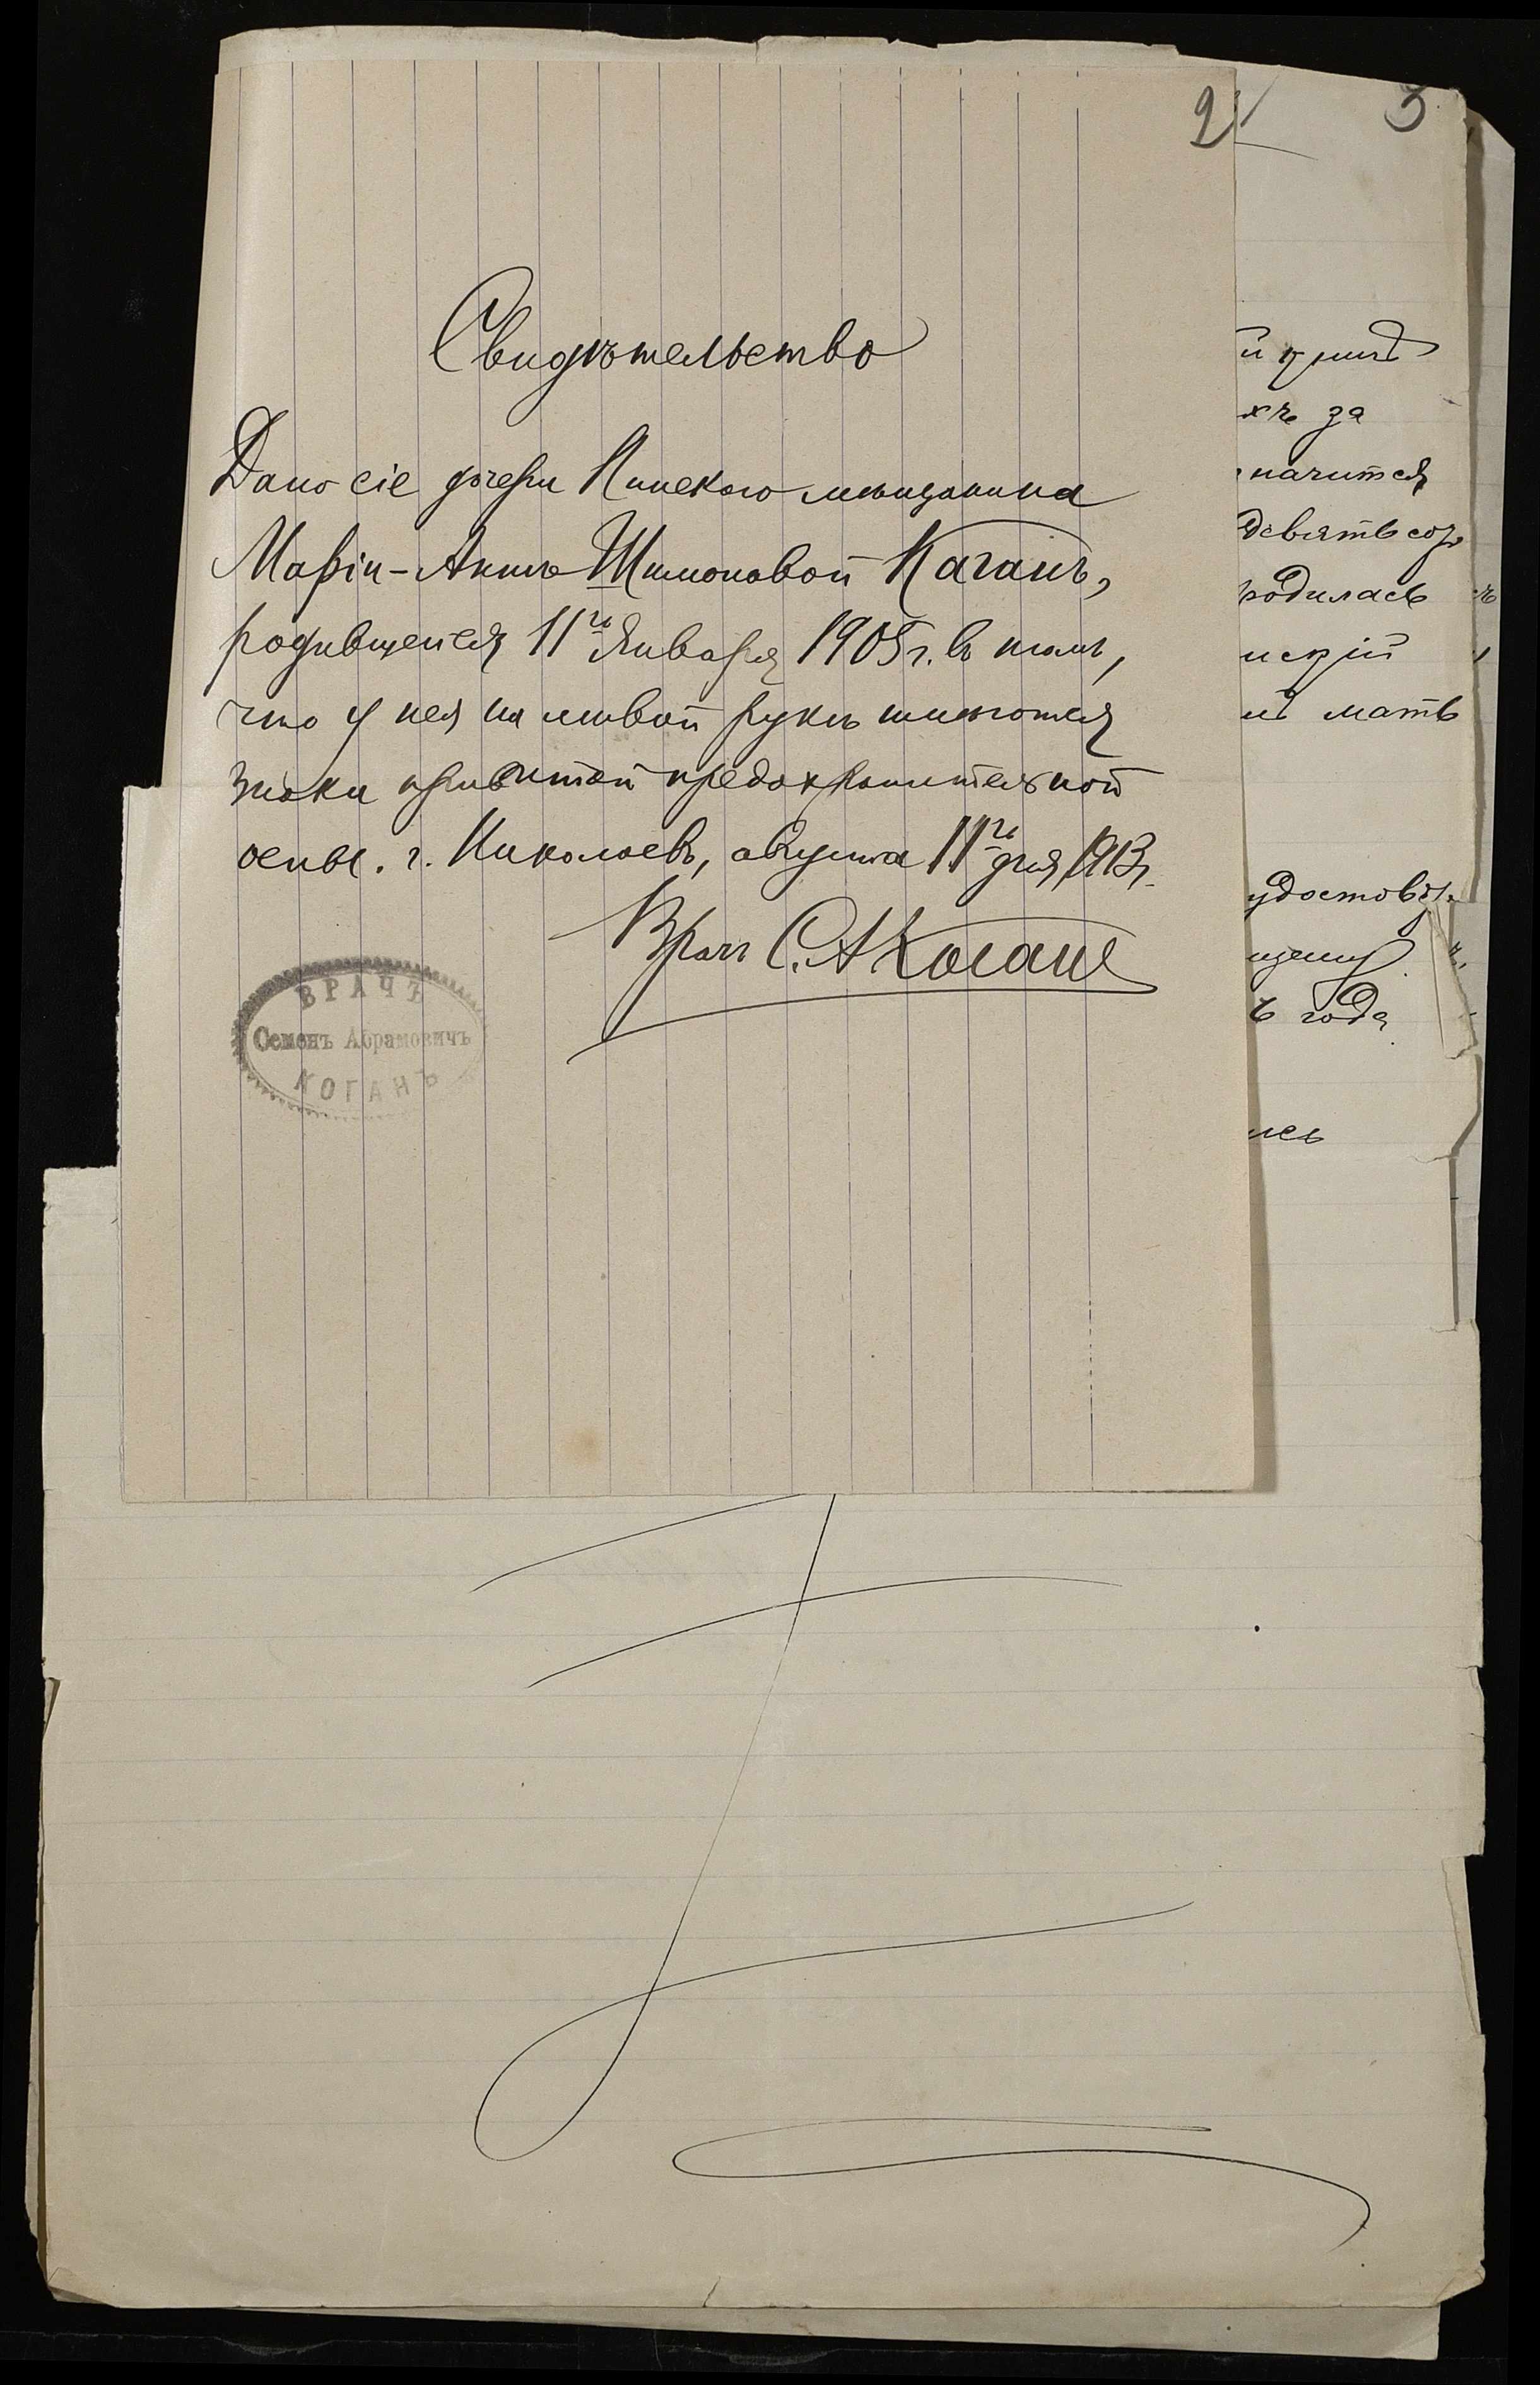 2 3
Свидѣтельство
Дано сіе дочери Пинскаго мѣщанина
Маріи-Аннѣ Шимоновой Каганъ,
родившейся 11го Января 1905 г. въ томъ,
что у нея на лѣвой рукѣ имѣются
знаки привитой предохранительной
оспы. г. Николаевъ, августа 11го дня 1913 г.
Врачъ С. А. Коганъ
ВРАЧЪ
Семенъ Абрамовичъ
КОГАНЪ
хъ за
начится
девятьсот
родилась
нскій
мать
удостовѣр
ъ года
лсь